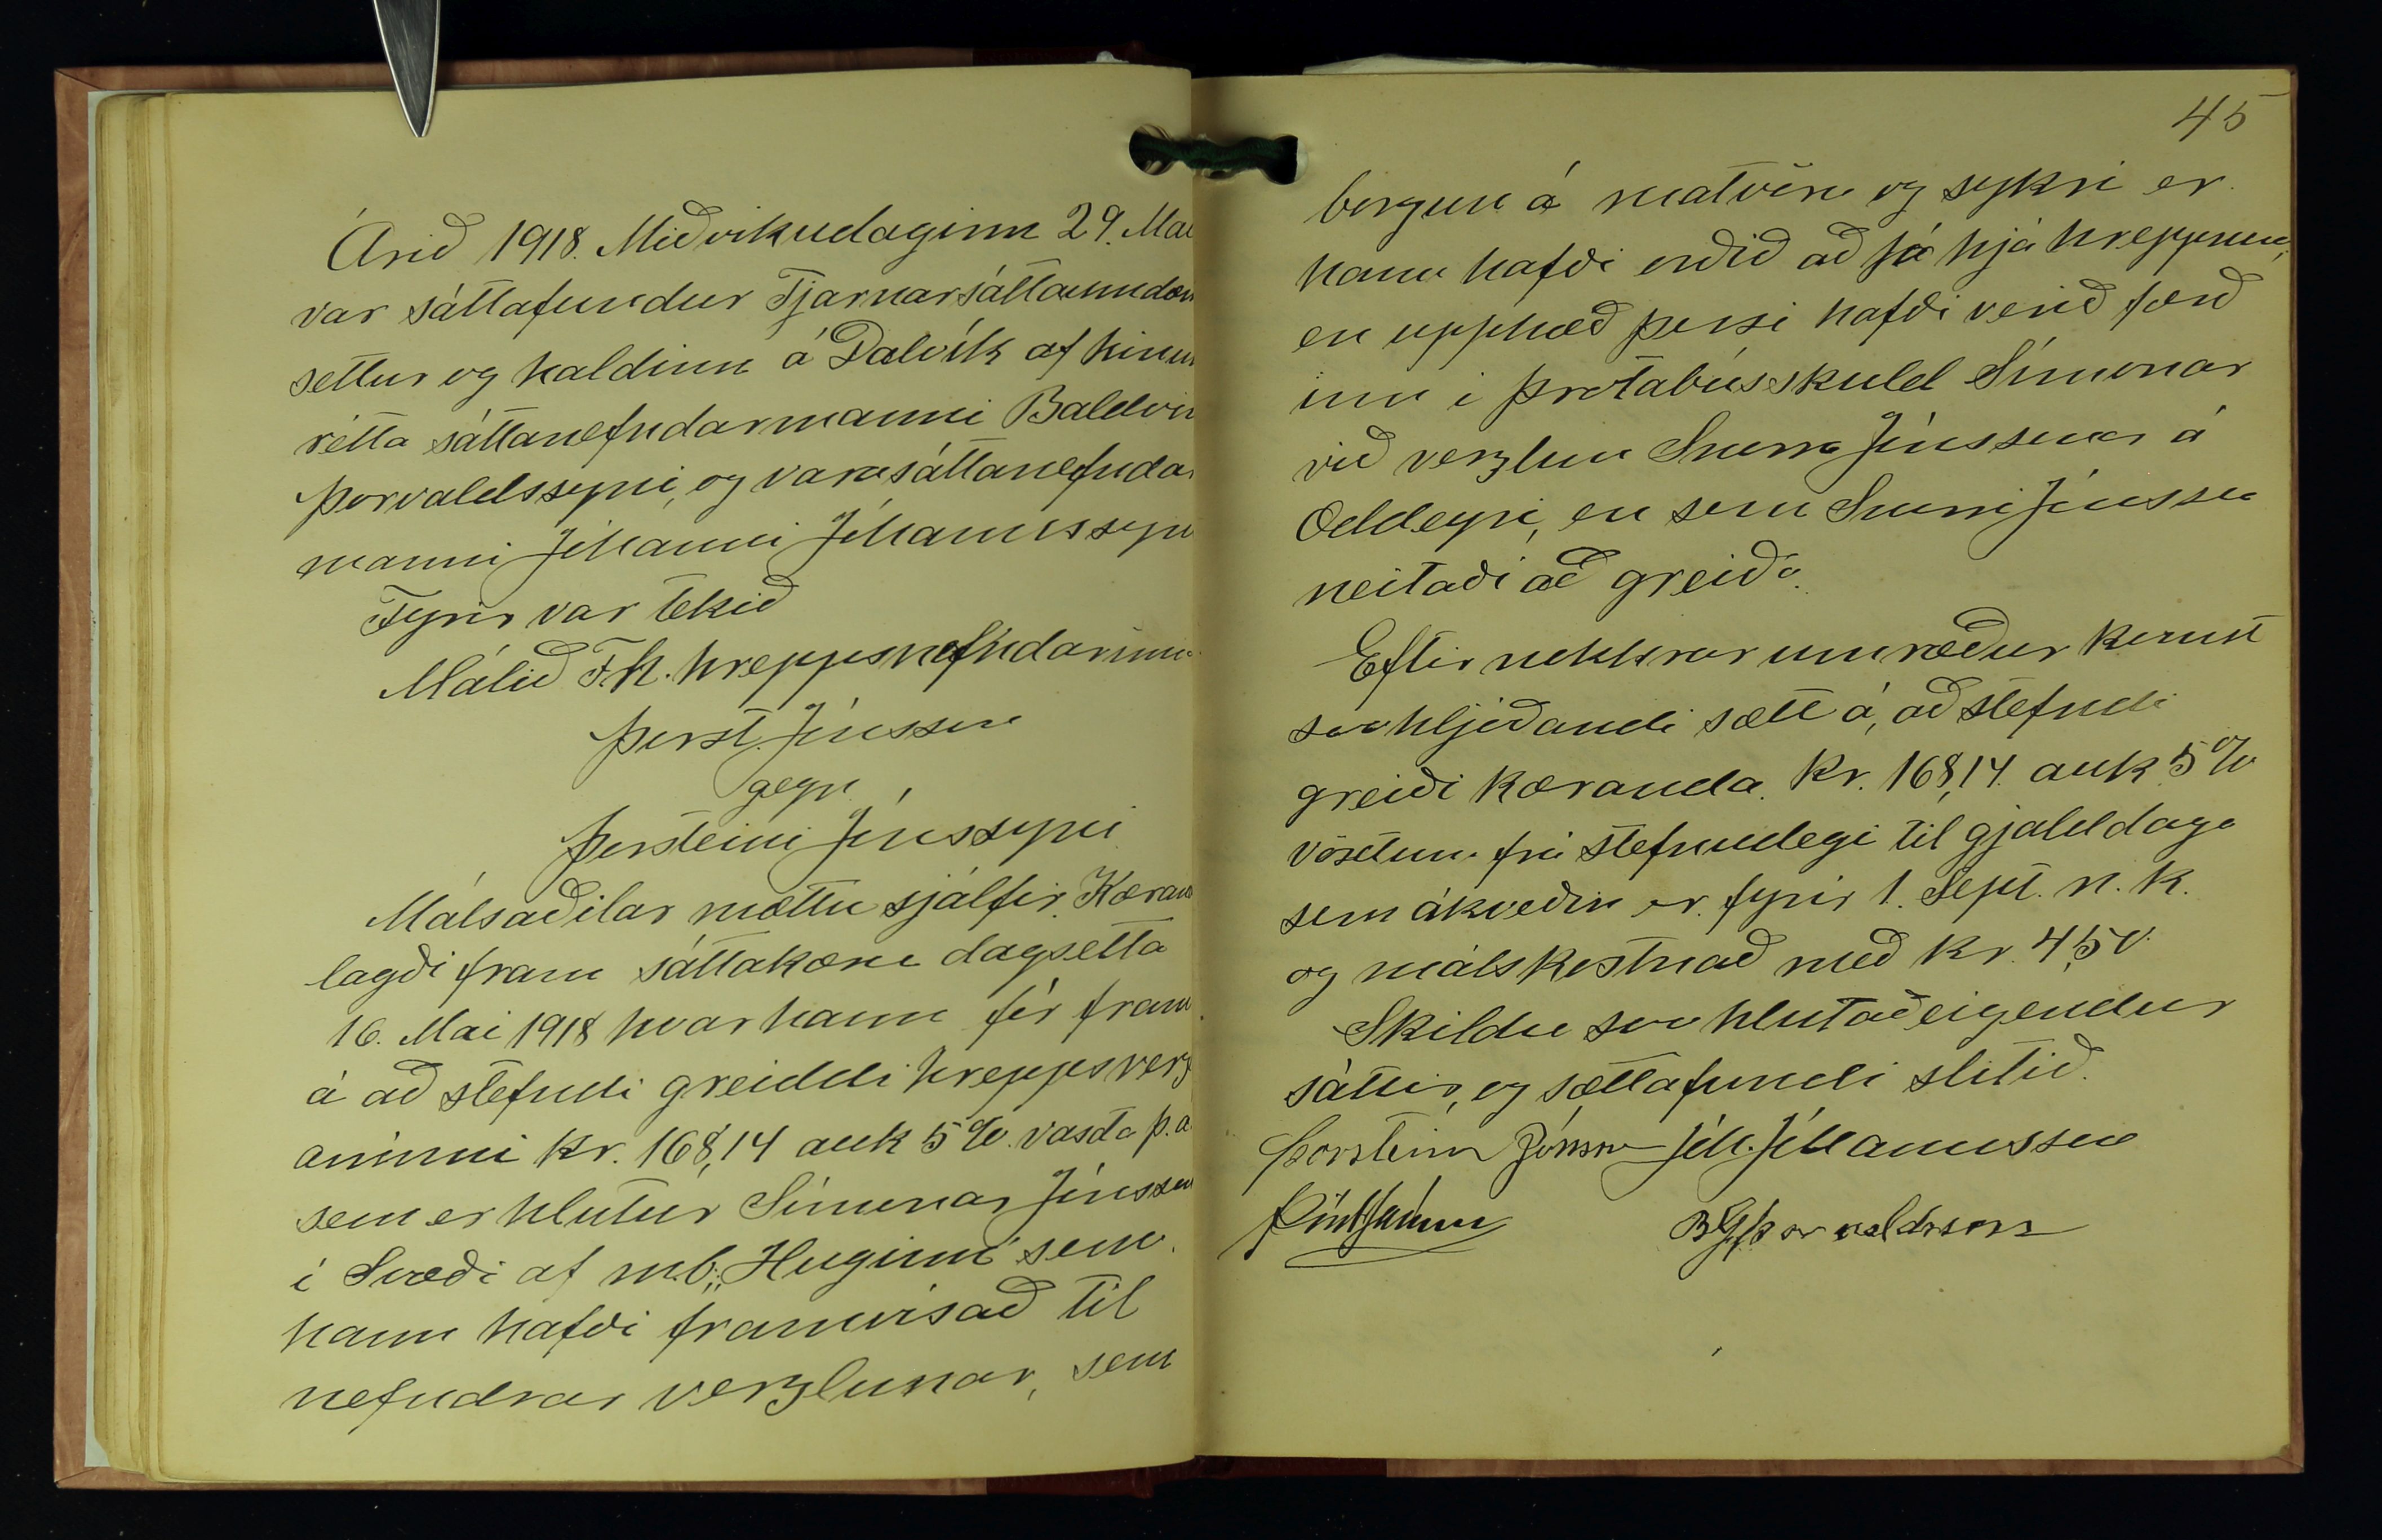 Árið 1918. Miðvikudaginn 29. Mai
var sáttafundur Tjarnarsáttaumdæm
settur og haldinn á Dalvík af hinum
rétta sáttanefndarmanni Baldvin
Þorvaldssyni, og varasáttanefndar
manni Jóhanni Jóhannssyni
Fyrir var tekið
Málið F.h. hreppsnefndarinnar
Þorst. Jónsson
gegn
Þorsteini Jónssyni
Málsaðilar mættu sjálfir. Kæran
lagði fram sáttakæru dagsetta
16. Mai 1918 hvar hann fer fram
á að stefndi greiddi hreppsverzl
uninni kr. 168,14 auk 5% vaxta p.a.
sem er hlutur Símonar Jónsson
í Svæði af m.b. „Huginn" sem
hann hafði framvísað til
nefndrar verzlunar, sem
45
borgun á matvöru og sykri er
hann hafði orðið að fá hjá hreppnum,
en upphæð þessi hafði verið færð
inn í þrotabússkuld Símonar
við verzlun Snorra Jónssonar á
Oddeyri, en sem Snorri Jónsson
neitaði að greiða.
Eftir nokkrar umræður komst
svohljóðandi sætt á, að stefndi
greiði kæranda kr. 168,14 auk 5%
vöxtum frá stefnudegi til gjalddaga
sem ákveðin er fyrir 1. Sept. n.k.
og málskostnað með kr. 4,50.
Skildu svo hlutaðeigendur
sáttir, og sættafundi slitið.
Þorsteinn Jónsson Jóh. Jóhannsson
B G Þorvaldsson